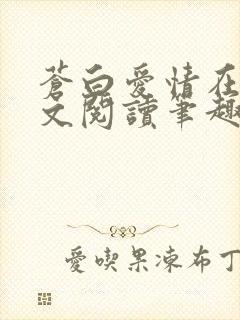 蒼白愛情在
文閱讀筆趣
愛喫果凍布丁